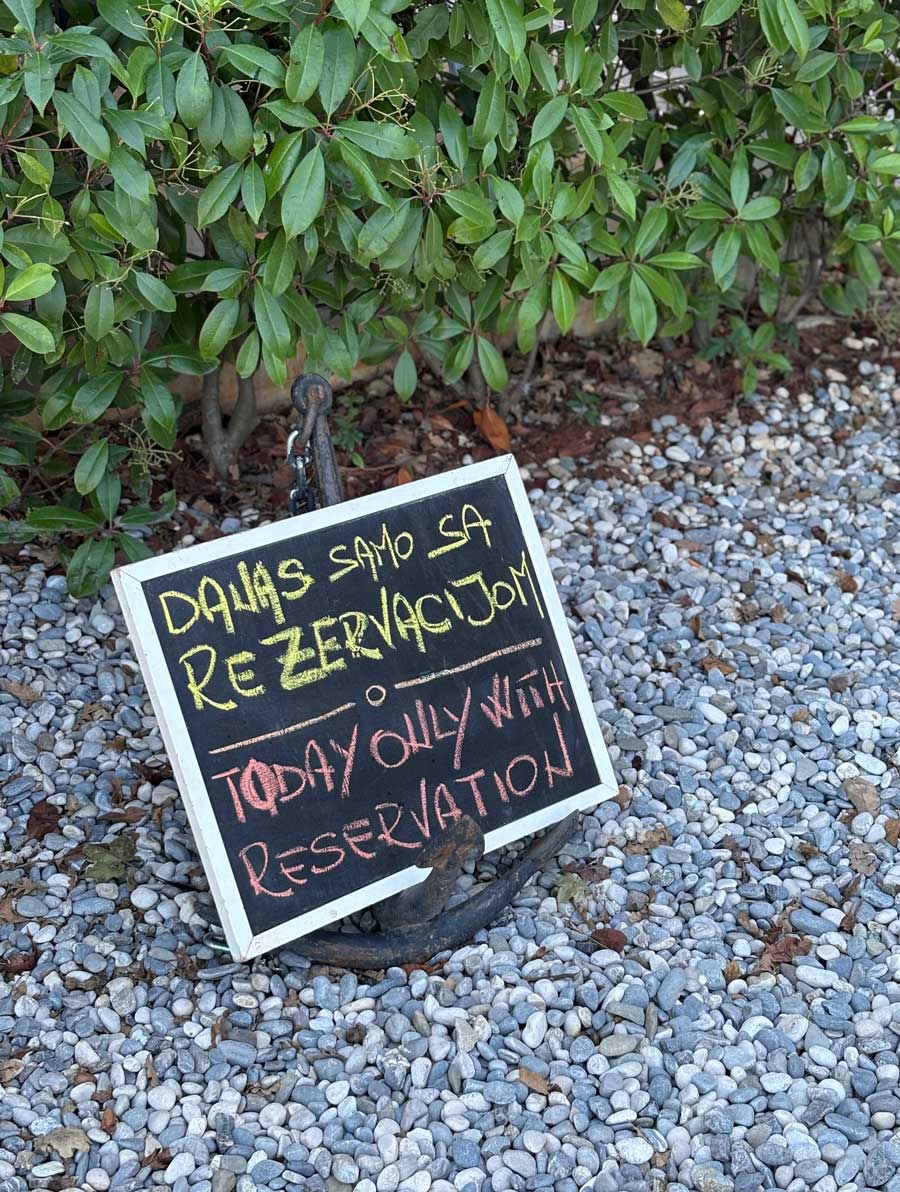 DANAS SAMO SA
REZERVACIJOM
TODAY ONLY WITH
RESERVATION